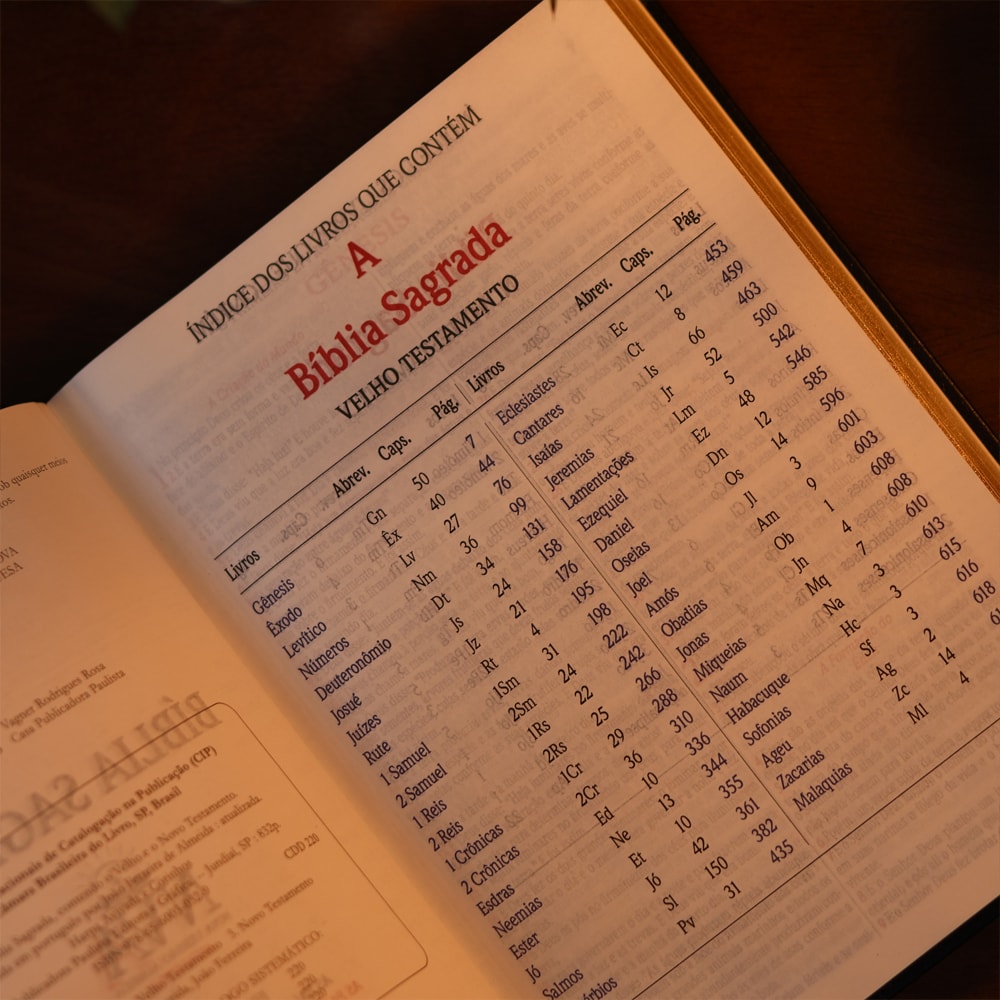 quaisquer meios
Vagner Rodrigues Rosa
Casa Publicadora Paulista
de Catalogação na Publicação (CIP)
Brasileira do Livro, SP, Brasil
e o Novo Testamento.
de Almeida - atualizada.
Jundiaí - SP : 832p.
CDD 220
Novo Testamento
João Ferreira
SISTEMÁTICO:
ÍNDICE DOS LIVROS QUE CONTÉM
A
Bíblia Sagrada
VELHO TESTAMENTO
Livros Abrev. Caps. Pág.
Gênesis Gn 50 7
Êxodo Êx 40 44
Levítico Lv 27 76
Números Nm 36 99
Deuteronômio Dt 34 131
Josué Js 24 158
Juízes Jz 21 176
Rute Rt 4 195
1 Samuel 1Sm 31 198
2 Samuel 2Sm 24 222
1 Reis 1Rs 22 242
2 Reis 2Rs 25 266
1 Crônicas 1Cr 29 288
2 Crônicas 2Cr 36 310
Esdras Ed 10 336
Neemias Ne 13 344
Ester Et 10 355
Jó Jó 42 361
Salmos Sl 150 382
érbios Pv 31 435
Livros Abrev. Caps. Pág.
Eclesiastes Ec 12 453
Cantares Ct 8 459
Isaías Is 66 463
Jeremias Jr 52 500
Lamentações Lm 5 542
Ezequiel Ez 48 546
Daniel Dn 12 585
Oseias Os 14 596
Joel Jl 3 601
Amós Am 9 603
Obadias Ob 1 608
Jonas Jn 4 608
Miqueias Mq 7 610
Naum Na 3 613
Habacuque Hc 3 615
Sofonias Sf 3 616
Ageu Ag 2 618
Zacarias Zc 14
Malaquias Ml 4